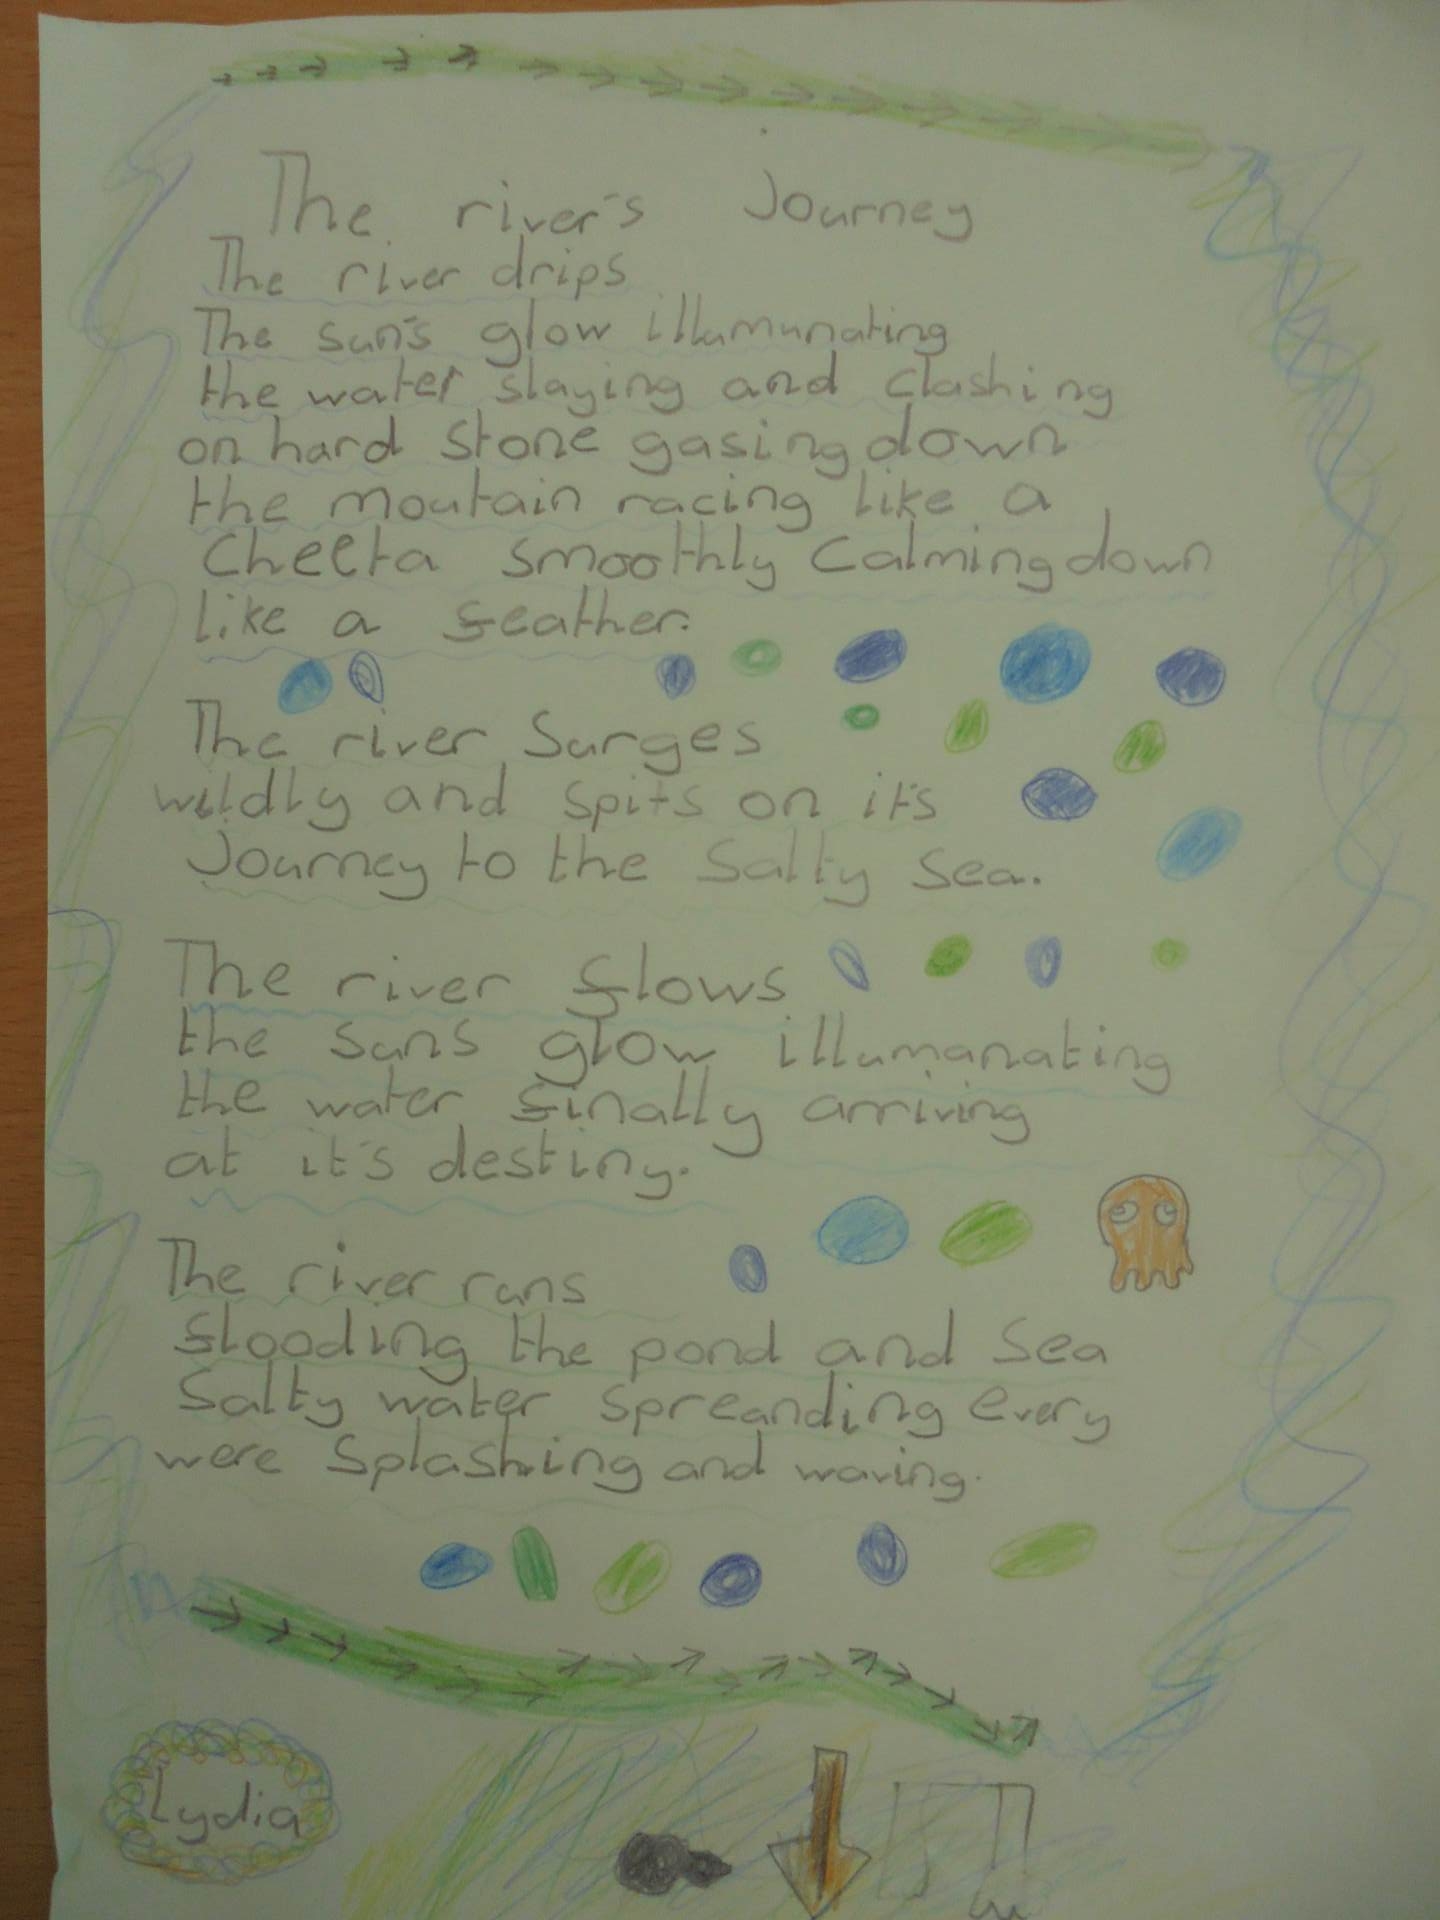 The river's Journey
The river drips
The sun's glow illumunating
the water slaying and clashing
on hard stone gasing down
the moutain racing like a
Cheeta smoothly Calming down
like a feather.
The river Surges
wildly and spits on it's
Journey to the Salty Sea.
The river flows
the suns glow illumanating
the water finally arriving
at it's destiny.
The river runs
flooding the pond and Sea
Salty water spreanding every
were Splashing and waving.
Lydia